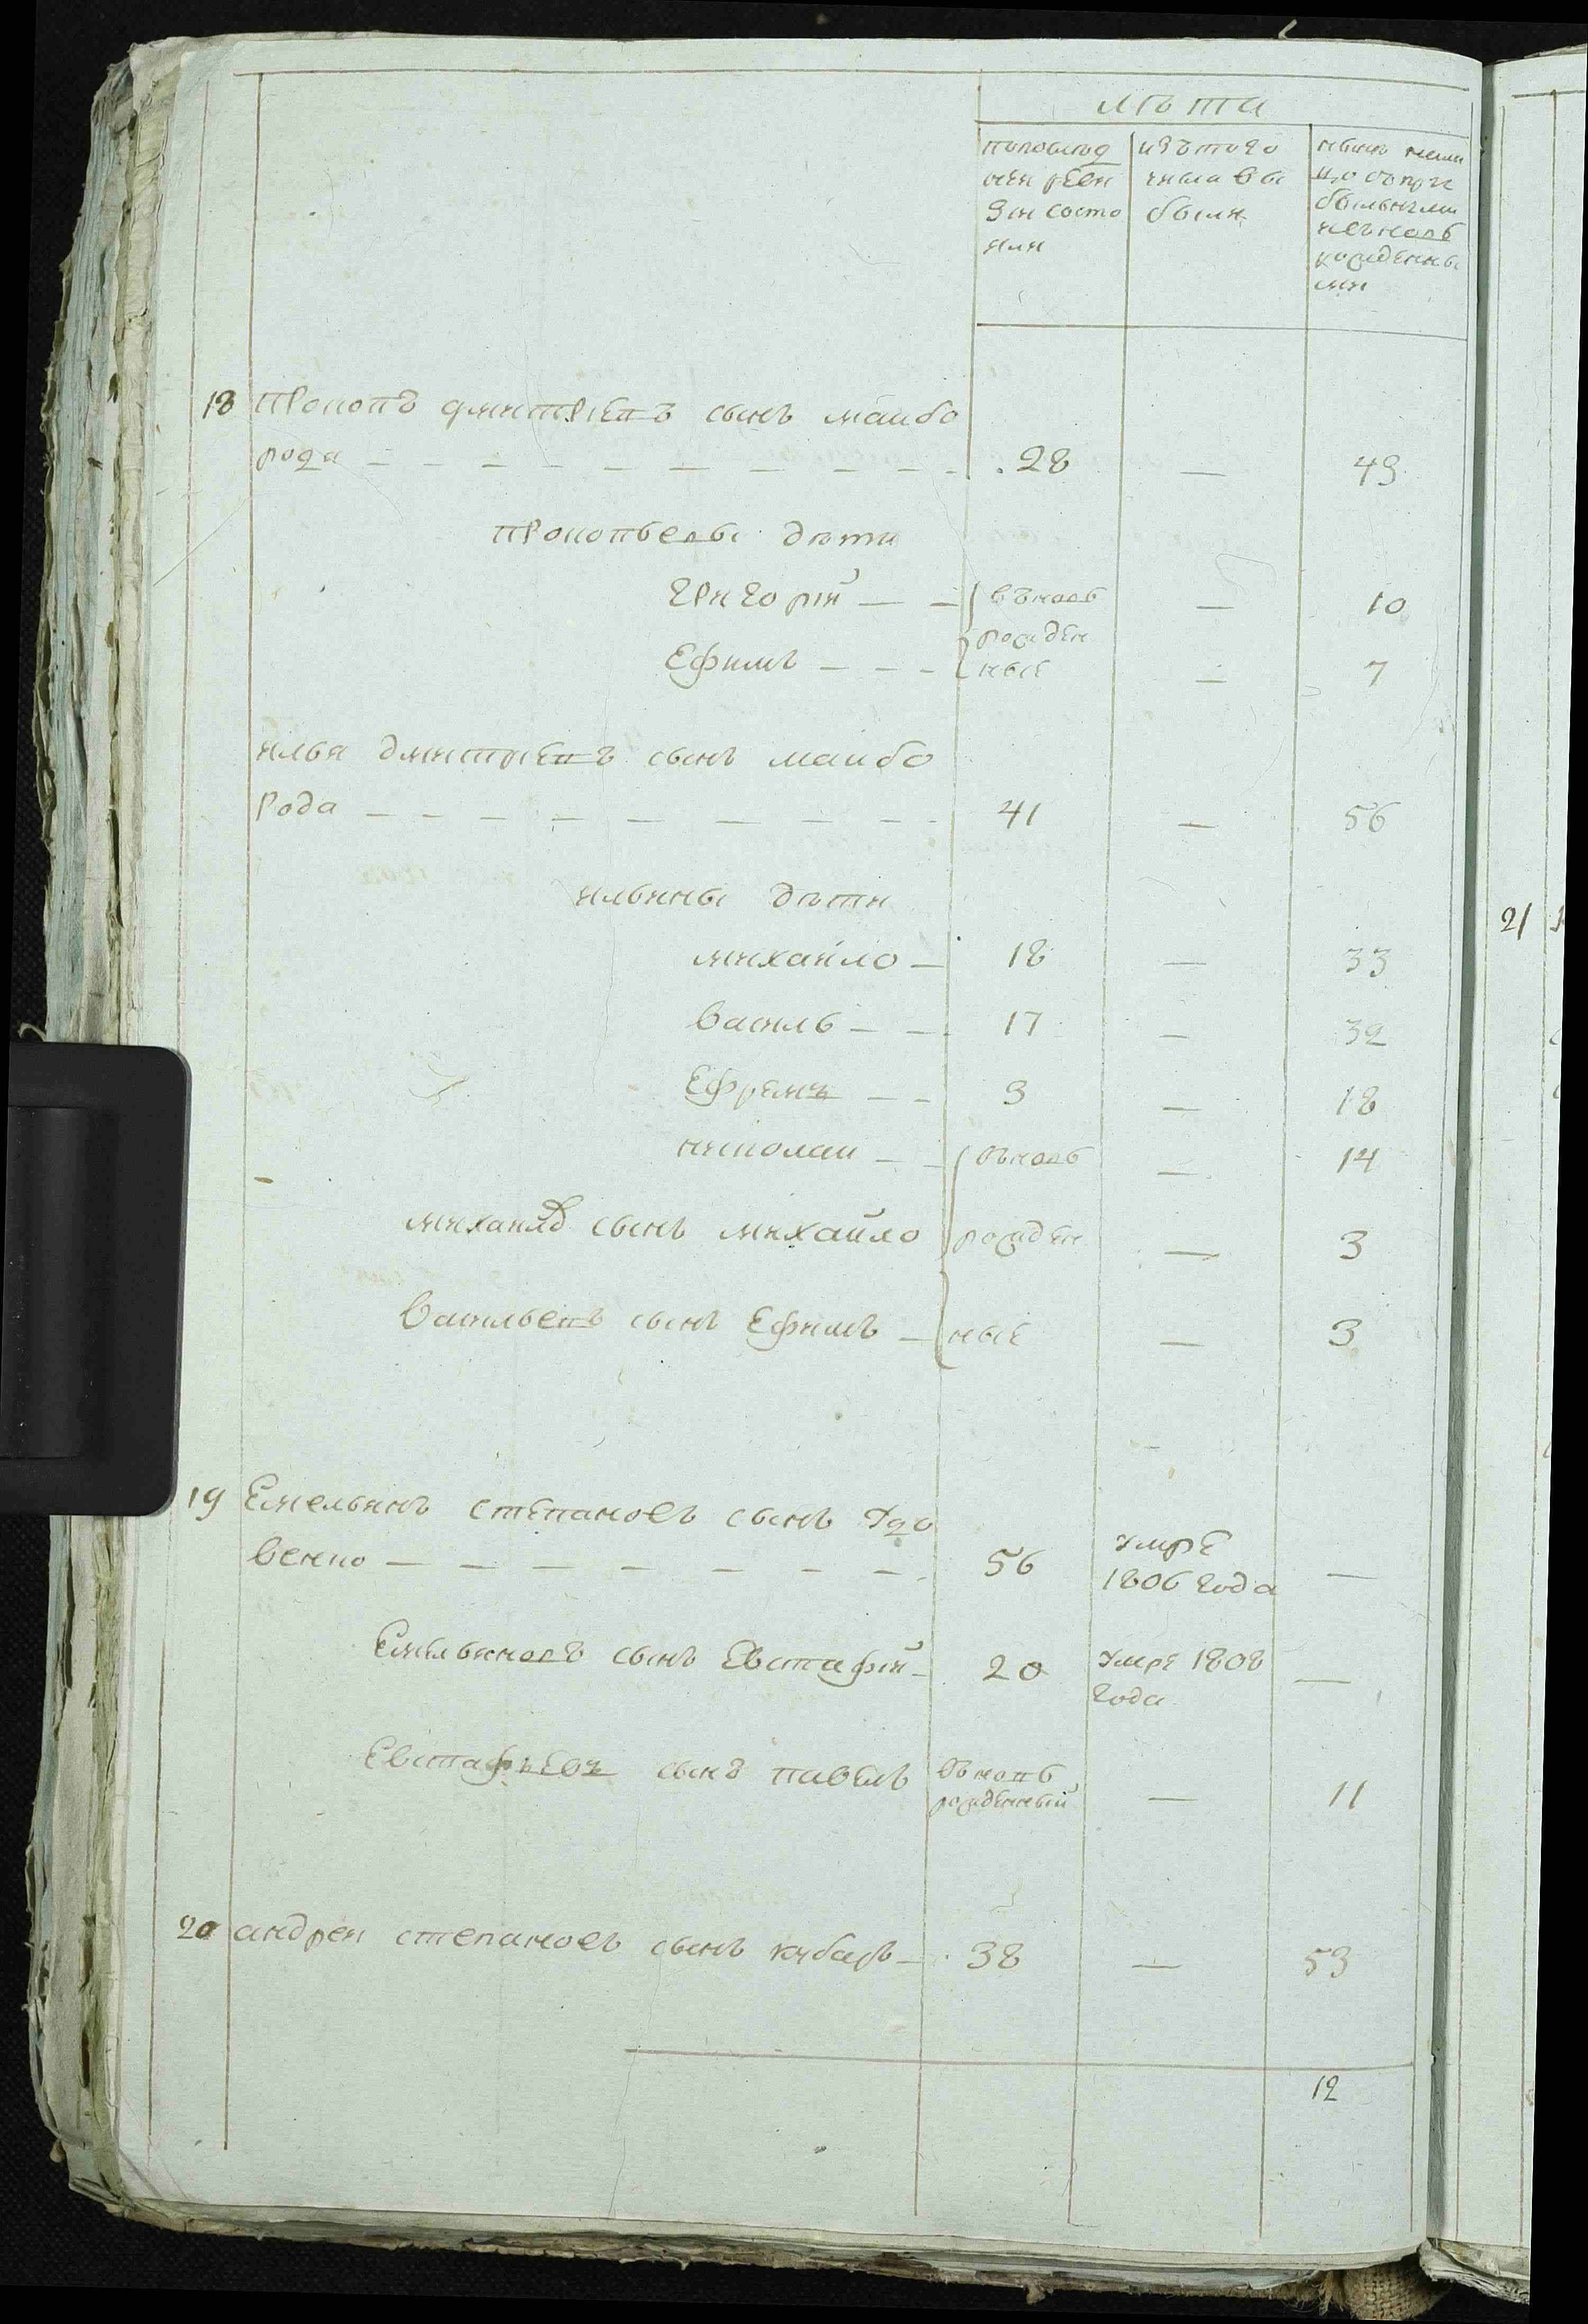 лѣта
попослѣд
ней реви
зіи состо
яли
изътого
числа вы
были
нынѣ нали
цо съпри
былыми
ивъновь
рожденны
ми
18 Прокопъ дмитріевъ сынъ маибо
рода — 28 — 43
Прокопьевы дѣти
Григорій — въновь — 10
рожден
Ефимъ — ные — 7
илья дмитріевъ сынъ маибо
Рода — 41 — 56
ильины дѣти
михайло — 18 — 33
василь — 17 — 32
Ефремъ — 3 — 18
николаи — въновь — 14
михаилъ сынъ михайло рожден — 3
васильевъ сынъ Ефимъ — ные — 3
19 Емельянъ степановъ сынъ Удо
венко — 56 умре
1806 года —
Емельяновъ сынъ Евстафій — 20 умре 1808
года —
Евстафьевъ сынъ павелъ въновь
рожденный — 11
20 андреи степановъ сынъ кубарь — 38 — 53
12
21